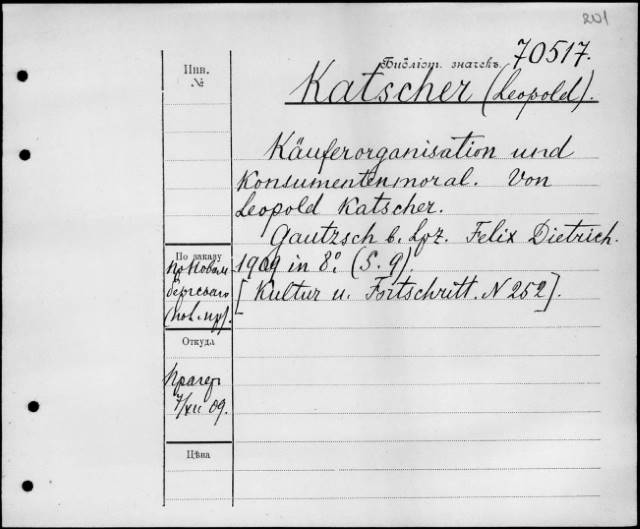 201
Инв.
№
Библіот. значекъ 70517.
Katscher (Leopold).
Käuferorganisation und
Konsumentenmoral. Von
Leopold Katscher.
Gautzsch b. Lpz. Felix Dietrich.
1909 in 8º. (S. 9).
[Kultur u. Fortschritt. N 252].
По заказу
Откуда
Прагер
7/XII 09.
Цѣна